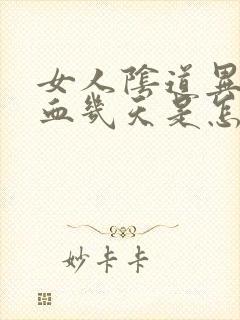 女人陰道異
血幾天是怎
妙卡卡